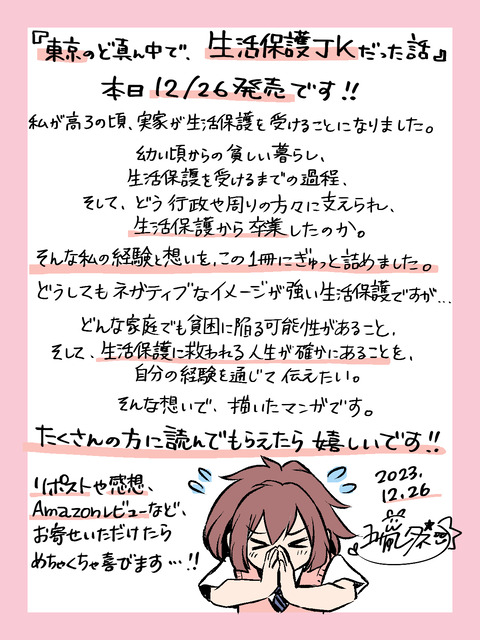 『東京のど真ん中で、生活保護JKだった話』
本日 12/26発売です!!
私が高3の頃、実家が生活保護を受けることになりました。
幼い頃からの貧しい暮らし、
生活保護を受けるまでの過程、
そして、どう行政や周りの方々に支えられ、
生活保護から卒業したのか。
そんな私の経験と想いを、この1冊にぎゅっと詰めました。
どうしてもネガティブなイメージが強い生活保護ですが…
どんな家庭でも貧困に陥る可能性があること、
そして、生活保護に救われる人生が確かにあることを、
自分の経験を通じて伝えたい。
そんな想いで、描いたマンガです。
たくさんの方に読んでもらえたら嬉しいです!!
リポストや感想、
Amazonレビューなど、
お寄せいただけたら
めちゃくちゃ喜びます…!!
2023.
12.26